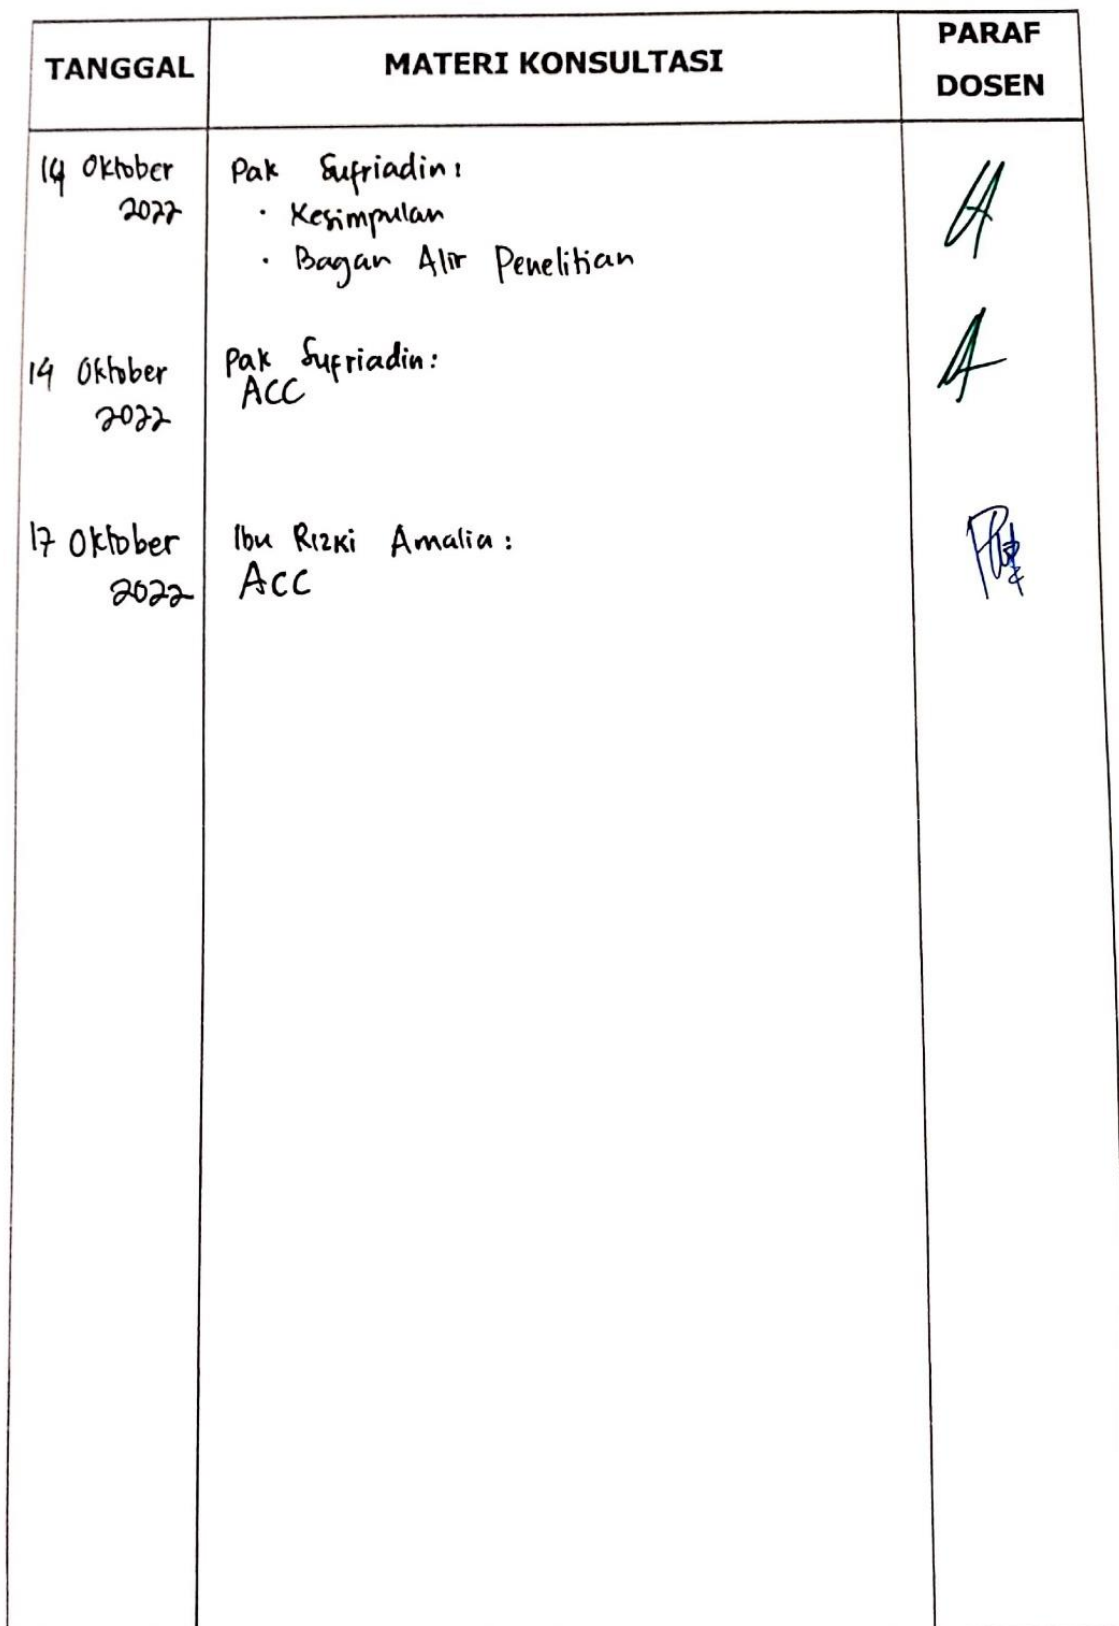 TANGGAL
MATERI KONSULTASI
PARAF
DOSEN
14 Oktober
2022
Pak Sufriadin:
· Kesimpulan
· Bagan Alir Penelitian
14 Oktober
2022
Pak Sufriadin:
ACC
17 Oktober
2022
Ibu Rizki Amalia:
ACC